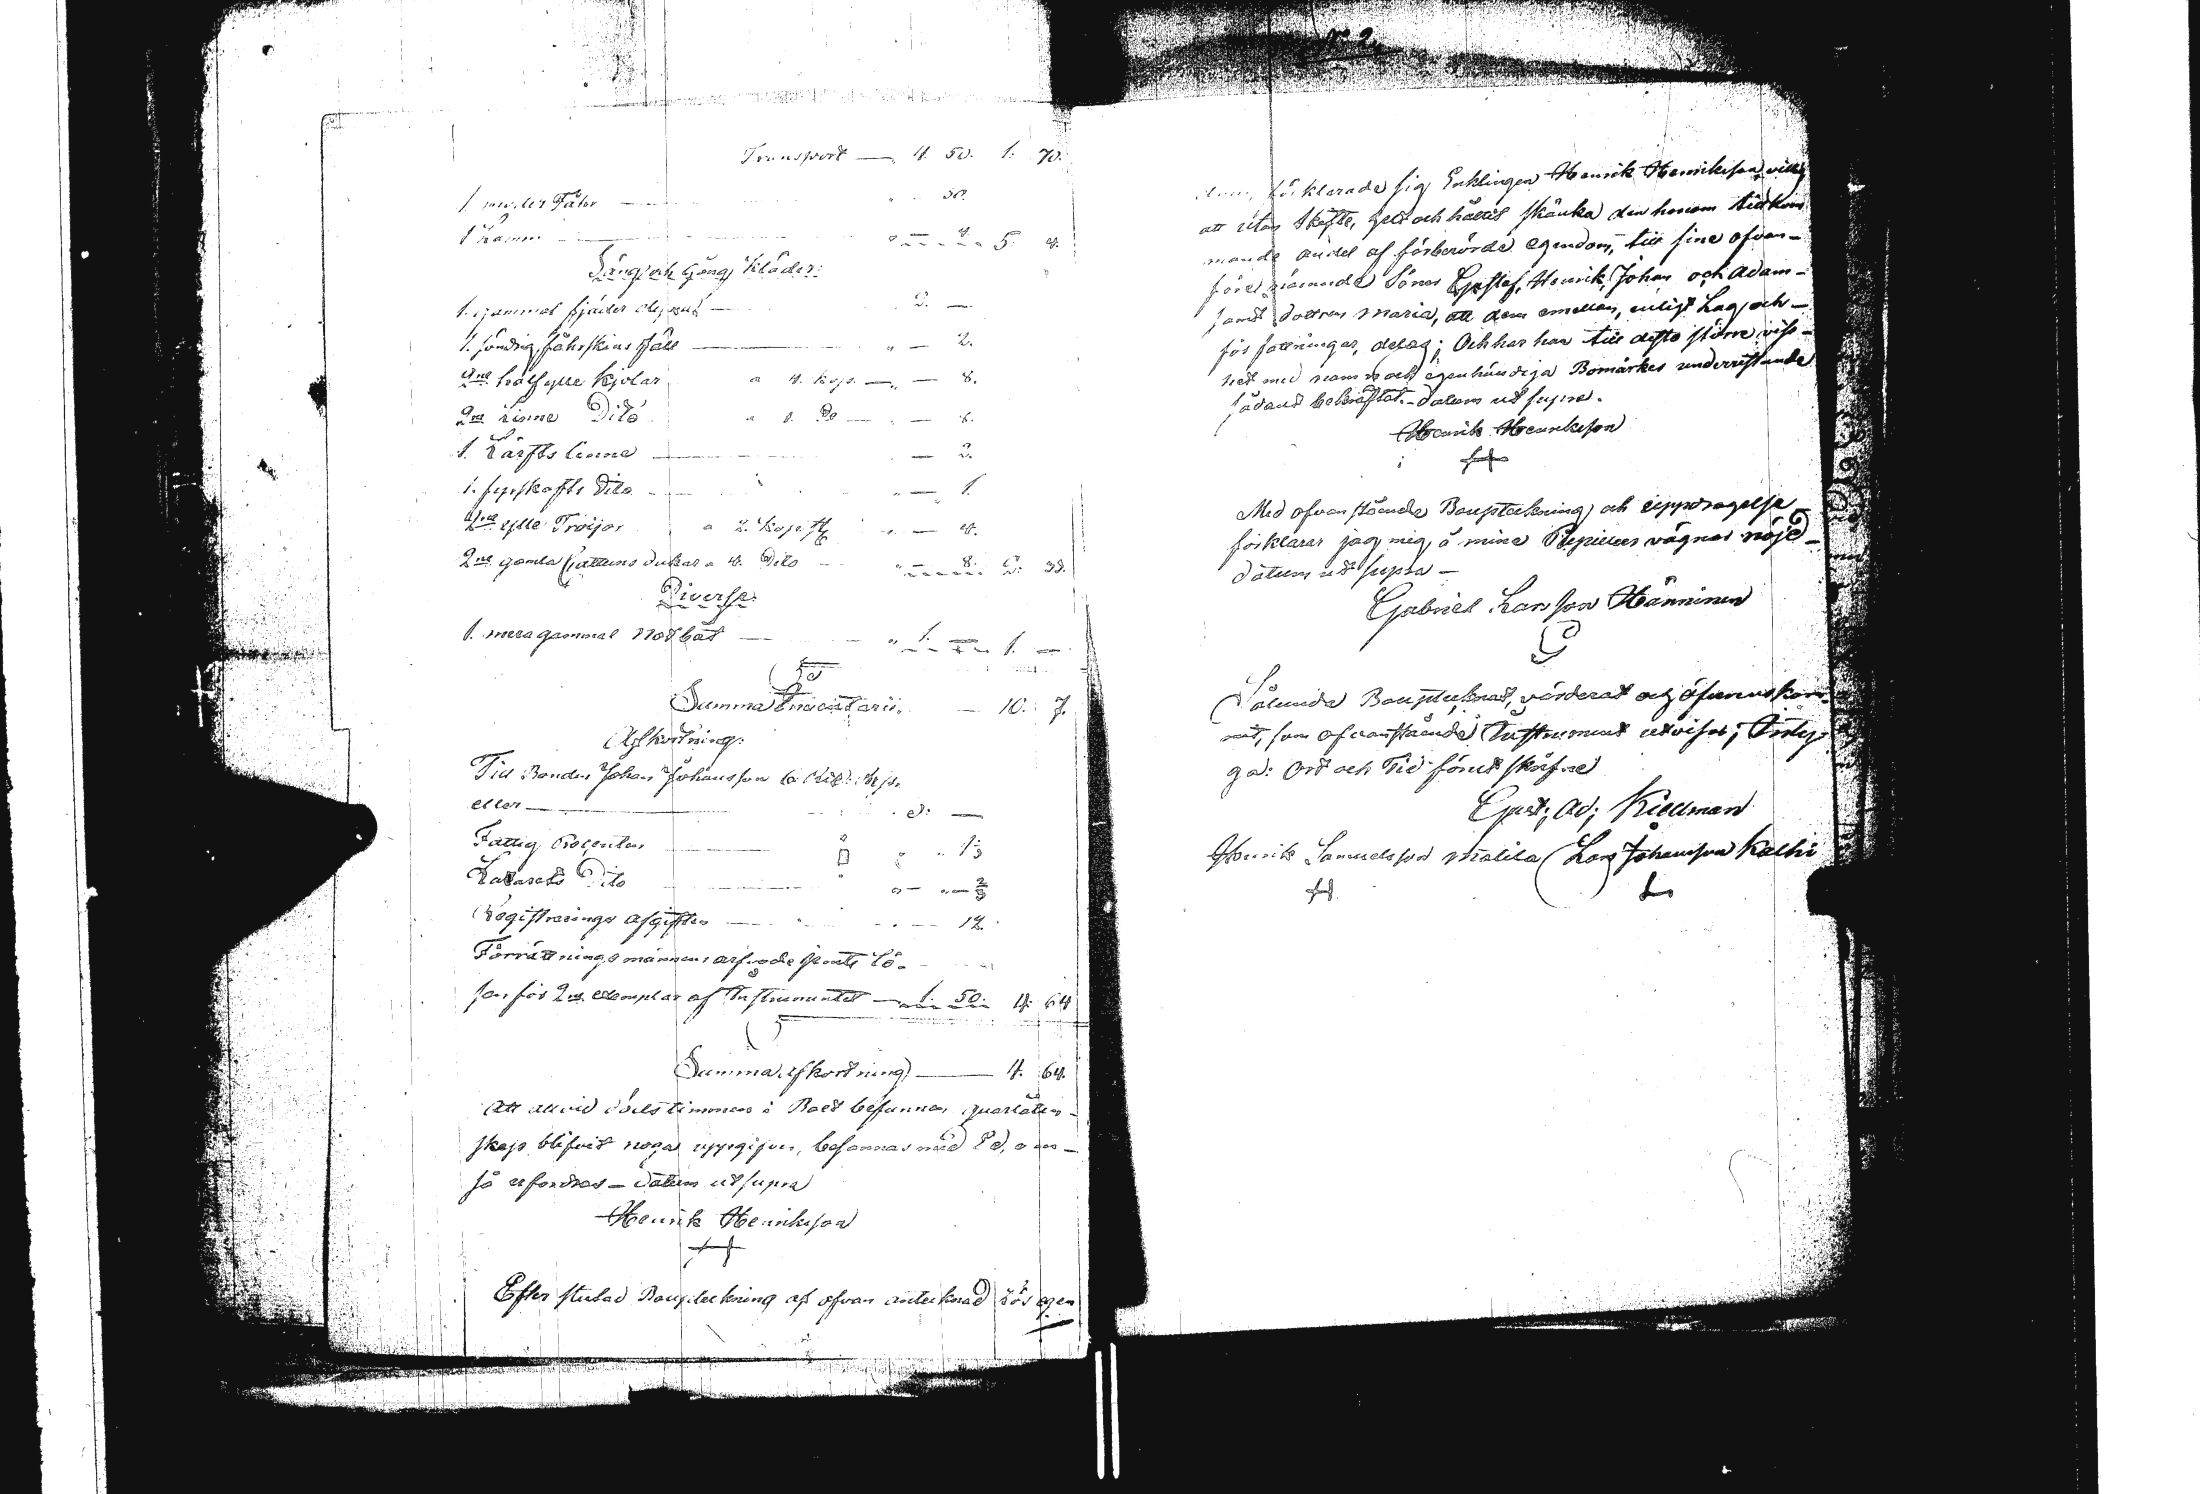 Transport — 4. 50. 1. 70.
1. Fåhr — 50.
1 Lamm — " — 4. 5. 4.
Säng och Gång Kläder:
1. gammal fjäder — 2. —
1. söndrig fåhrskins fäll — " — 2.
2ne halfylle kjolar a 4. kop. — " — 8.
2ne Linne Dito a 3. Do — " — 6.
1. Lärfts linne — 2.
1. fyrskafts Dito — " — 1.
2ne ylle Tröijor a 2. kop. — " — 4.
2ne gamla Cattuns dukar a 4. Dito — " — 8. 2. 33.
Diverse:
1. mera gammal Notbåt — " 1. — 1. —
Summa Inventarii. — 10. 7.
Afkortning:
Till Bonden Johan Johansson
eller — 3. —
Fattig Procenten — " " 1 1/3
Lazarets Dito — " — " — 2/3
Registrerings afgiften — " — 12.
Förrättningsmännens arfvode jemte Lö-
sen för 2ne exemplar af Instrumentet — 1. 50. 4. 64
Summa afkortning — 4. 64.
Att allt vid dödstimmen i Boet befunnen qvarlåten-
skap blifvit noga uppgifven, besannas med Ed, om
så erfordras — Datum ut supra
Henrik Henriksson
Efter slutad Bouptekning af ofvan anteknad Lös egen
N 2.
dom, förklarade sig Enklingen Henrik Henriksson villig
att utan Skifte, gett och hållet skänka den honom tillkom
mande andel af förberörde egendom, till sine ofvan-
före nämnde Söner Gustaf, Henrik, Johan och Adam-
samt dottren Maria, att dem emellan, enligt Lag och-
författningar, delas; Och har han till desto större viss-
het med namn och egenhändiga Bomärkes underristande
sådant bekräftat. – Datum ut supra.
Henrik Henriksson
Med ofvanstående Bouptekning och uppdragelse
förklarar jag mig, å mine Pupillers vägnar nöjd –
Datum ut supra –
Gabriel Larsson Hänninen
Sålunda Bouptecknat, värderat och öfverenskom-
mit, som ofvanstående Instrument utvisar; Intyga
ga: Ort och Tid förutskrifne
Gust; Ad; Killman
Henrik Samuelsson Malila Lars Johansson Kalhi